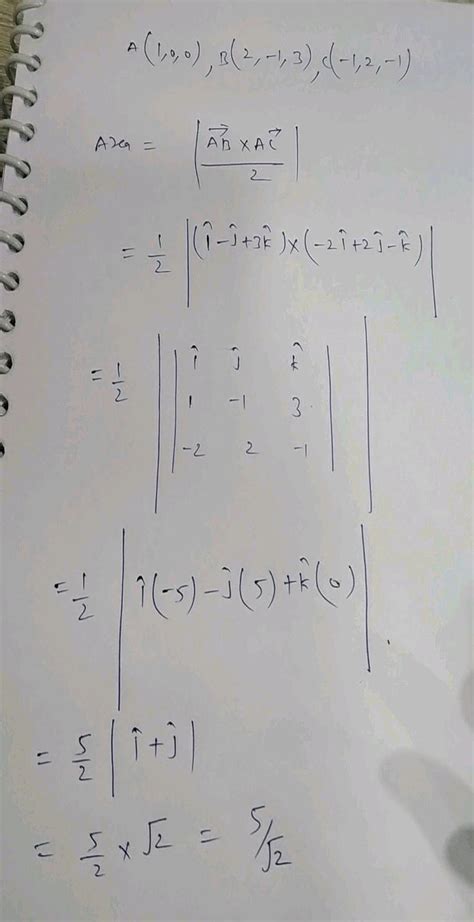 A(1,0,0), B(2,-1,3), C(-1,2,-1)
Area = | (AB⃗ × AC⃗)/2 |
= 1/2 |(î-ĵ+3k̂)×(-2î+2ĵ-k̂)|
= 1/2 | | î ĵ k̂
1 -1 3
-2 2 -1 | |
= 1/2 | î(-5)-ĵ(5)+k̂(0) |
= 5/2 | î+ĵ |
= 5/2 × √2 = 5/√2